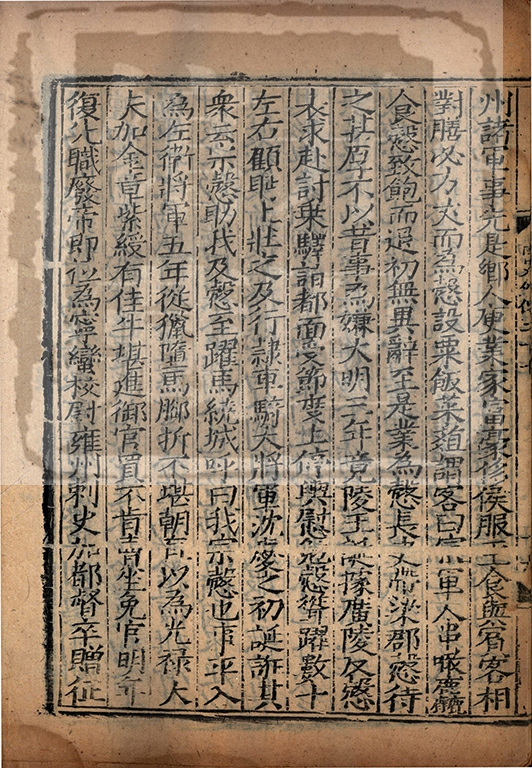 州諸軍事先是鄉人庾業家富豪侈侯服玉食與賓客相
對膳必方丈而為慤設粟飯菜葅謂客曰宗軍人串噉麤
食慤致飽而退初無異辭至是業為慤長史帶梁郡慤待
之甚厚不以昔事為嫌大明三年竟陵王誕據廣陵反慤
表求赴討乘驛詣都面受節度上停輿慰勉慤聳躍數十
左右顧眄上壯之及行隷車騎大將軍沈慶之初誕誑其
衆云宗慤助我及慤至躍馬繞城呼曰我宗慤也事平入
為左衛將軍五年從獵墮馬脚折不堪朝直以為光禄大
夫加金章紫綬有佳牛堪進御官買不肯賣坐免官明年
復先職廢帝即位為寧蠻校尉雍州刺史加都督卒贈征